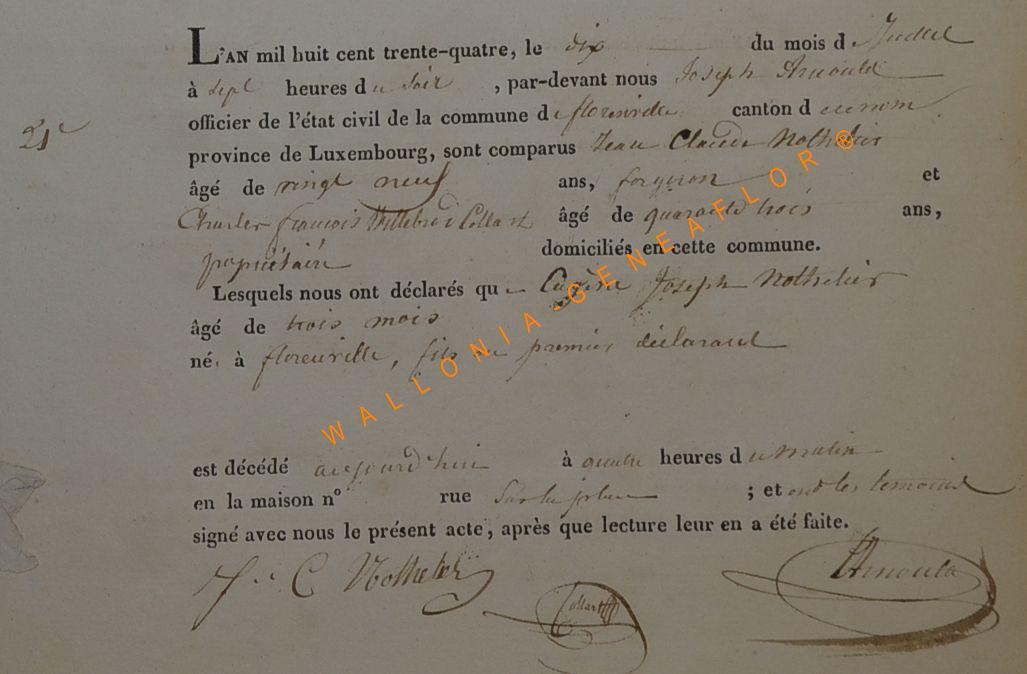 L'AN mil huit cent trente-quatre, le dix du mois de Juillet
à sept heures du soir , par-devant nous Joseph Arnould
officier de l'état civil de la commune de florenville canton d
21e
province de Luxembourg, sont comparus Jean Claude Nothelier
âgé de vingt neuf ans, forgeron et
Charles françois Willebrod Collart âgé de quarante trois ans,
propriétaire domiciliés en cette commune.
Lesquels nous ont déclarés que Eugène Joseph Nothelier
âgé de trois mois
né à florenville, fils du premier déclarant
est décédé aujourd'hui à quatre heures du matin
en la maison n° rue Sur la place ; et ont les temoins
signé avec nous le présent acte, après que lecture leur en a été faite.
J. C Nothelier
Collart
Arnould
WALLONIA-GENEAFLOR®